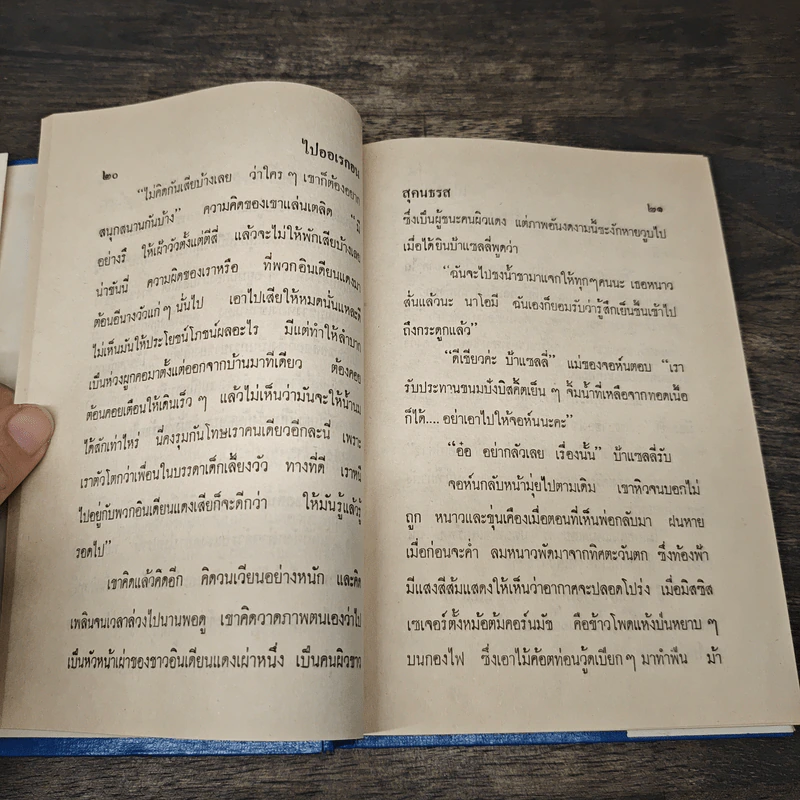 ๒๐
ไปออเรกอน
“ไม่คิดกันเสียบ้างเลย ว่าใคร ๆ เขาก็ต้องอยาก
สนุกสนานกันบ้าง” ความคิดของเขาแล่นเตลิด “มี
อย่างรึ ให้เฝ้าวัวตั้งแต่ตีสี่ แล้วจะไม่ให้พักเสียบ้างเลย
น่าขันนี่ ความผิดของเราหรือ ที่พวกอินเดียนแดงมา
ต้อนอีนางวัวแก่ ๆ นั่นไป เอาไปเสียให้หมดนั่นแหละดี
ไม่เห็นมันให้ประโยชน์โภชน์ผลอะไร มีแต่ทำให้ลำบาก
เป็นห่วงผูกคอมาตั้งแต่ออกจากบ้านมาทีเดียว ต้องคอย
ต้อนคอยเตือนให้เดินเร็ว ๆ แล้วไม่เห็นว่ามันจะให้น้ำนม
ได้สักเท่าไหร่ นี่คงรุมกันโทษเราคนเดียวอีกละนี่ เพราะ
เราตัวโตกว่าเพื่อนในบรรดาเด็กเลี้ยงวัว ทางที่ดี เราหนี
ไปอยู่กับพวกอินเดียนแดงเสียก็จะดีกว่า ให้มันรู้แล้วรู้
รอดไป”
เขาคิดแล้วคิดอีก คิดวนเวียนอย่างหนัก และคิด
เพลินจนเวลาล่วงไปนานพอดู เขาคิดวาดภาพตนเองว่าไป
เป็นหัวหน้าเผ่าของชาวอินเดียนแดงเผ่าหนึ่ง เป็นคนผิวขาว
สุคนธรส
๒๑
ซึ่งเป็นผู้ชนะคนผิวแดง แต่ภาพอันงดงามนี้ชะงักหายวูบไป
เมื่อได้ยินป้าแซลลี่พูดว่า
“ฉันจะไปชงน้ำชามาแจกให้ทุกๆคนนะ เธอหนาว
สั่นแล้วนะ นาโอมี ฉันเองก็ยอมรับว่ารู้สึกเย็นชื้นเข้าไป
ถึงกระดูกแล้ว”
“ดีเชียวค่ะ ป้าแซลลี่” แม่ของจอห์นตอบ “เรา
รับประทานขนมปังบิสคิ๊ตเย็น ๆ จิ้มน้ำที่เหลือจากทอดเนื้อ
ก็ได้.... อย่าเอาไปให้จอห์นนะคะ”
“อ๋อ อย่ากลัวเลย เรื่องนั้น” ป้าแซลลี่รับ
จอห์นกลับหน้ามุ่ยไปตามเดิม เขาหิวจนบอกไม่
ถูก หนาวและขุ่นเคืองเมื่อตอนที่เห็นพ่อกลับมา ฝนหาย
เมื่อก่อนจะค่ำ ลมหนาวพัดมาจากทิศตะวันตก ซึ่งท้องฟ้า
มีแสงสีส้มแสดงให้เห็นว่าอากาศจะปลอดโปร่ง เมื่อมิสซิส
เซเจอร์ตั้งหม้อต้มคอร์นมัช คือข้าวโพดแห้งป่นหยาบ ๆ
บนกองไฟ ซึ่งเอาไม้ค้อตท่อนวู้ดเปียก ๆ มาทำฟืน ม้า